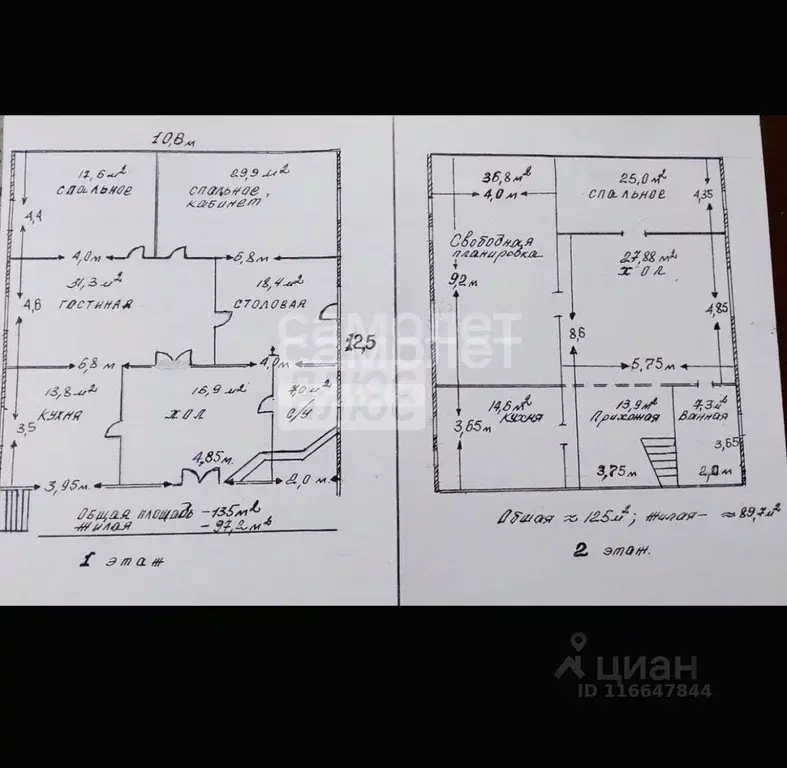 10,8 м
17,6 м²
спальное
29,9 м²
спальное,
кабинет
4,4
4,0 м
6,8 м
31,3 м²
гостиная
18,4 м²
столовая
4,6
12,5
6,8 м
4,0 м
13,8 м²
кухня
16,9 м²
хол
7,0 м²
с/у
3,5
4,85 м.
3,95 м.
2,0 м
Общая площадь -135 м²
жилая -97,2 м²
1 этаж
36,8 м²
4,0 м
25,0 м²
спальное
4,35
Свободная
планировка
27,88 м²
хол
9,2 м
4,85
8,6
5,75 м
14,6 м²
кухня
13,9 м²
Прихожая
7,3 м²
Ванная
3,65 м
3,65
3,75 м
2,0 м
Общая ≈ 125 м²; жилая - ≈ 89,7 м²
2 этаж.
самолет
самолет
плюс
циан
ID 116647844